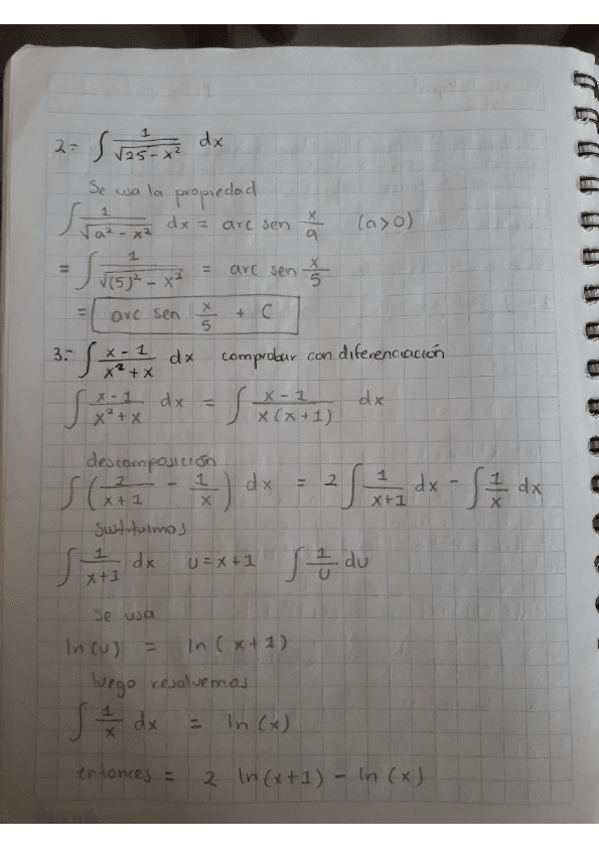 2.- ∫ 1/√25 - x² dx
Se usa la propiedad
∫ 1/√a² - x² dx = arc sen x/a (a>0)
= ∫ 1/√(5)² - x² = arc sen x/5
= arc sen x/5 + C
3.- ∫ x - 1/x² + x dx comprobar con diferenciación
∫ x - 1/x² + x dx = ∫ x - 1/x(x+1) dx
descomposición
∫ (2/x+1 - 1/x) dx = 2 ∫ 1/x+1 dx - ∫ 1/x dx
Sustituimos
∫ 1/x+1 dx u = x+1 ∫ 1/u du
se usa
ln(u) = ln(x+1)
luego resolvemos
∫ 1/x dx = ln(x)
entonces = 2 ln(x+1) - ln(x)